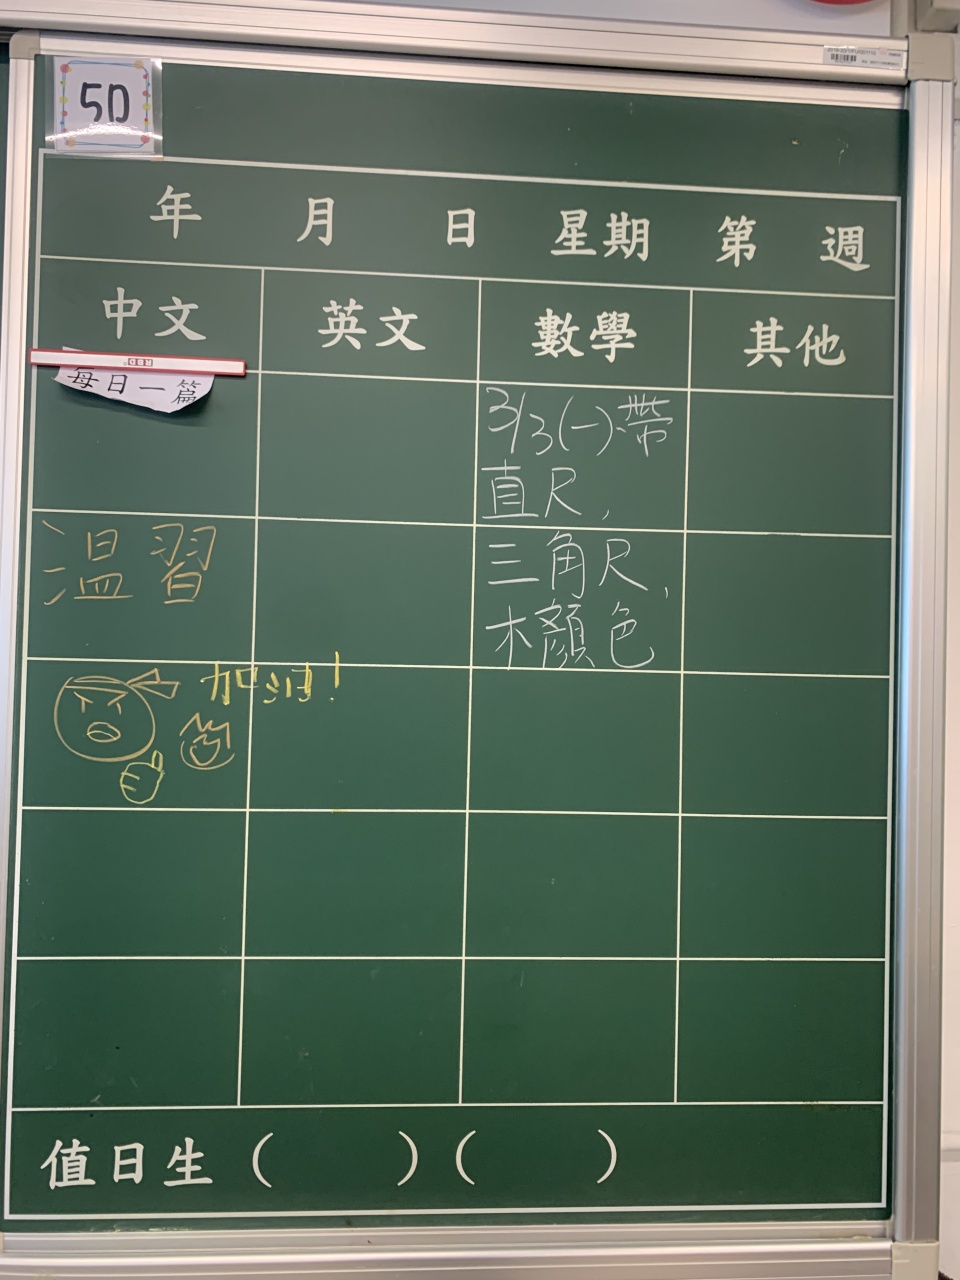 5D
年 月 日 星期 第 週
中文 英文 數學 其他
RBD
每日一篇
3/3(一)帶
直尺,
溫習
三角尺,
木顏色
加油!
值日生 ( ) ( )